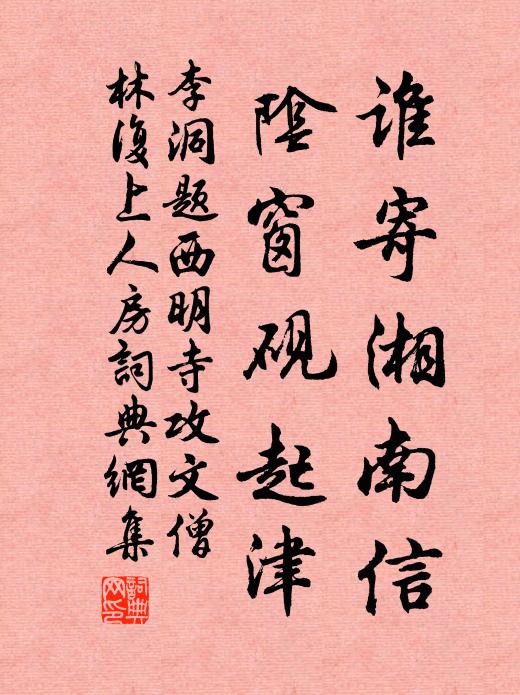 谁寄湘南信
陰窗砚起津
李洞题西明寺攻文僧
林復上人房詞典網集
詞典網印